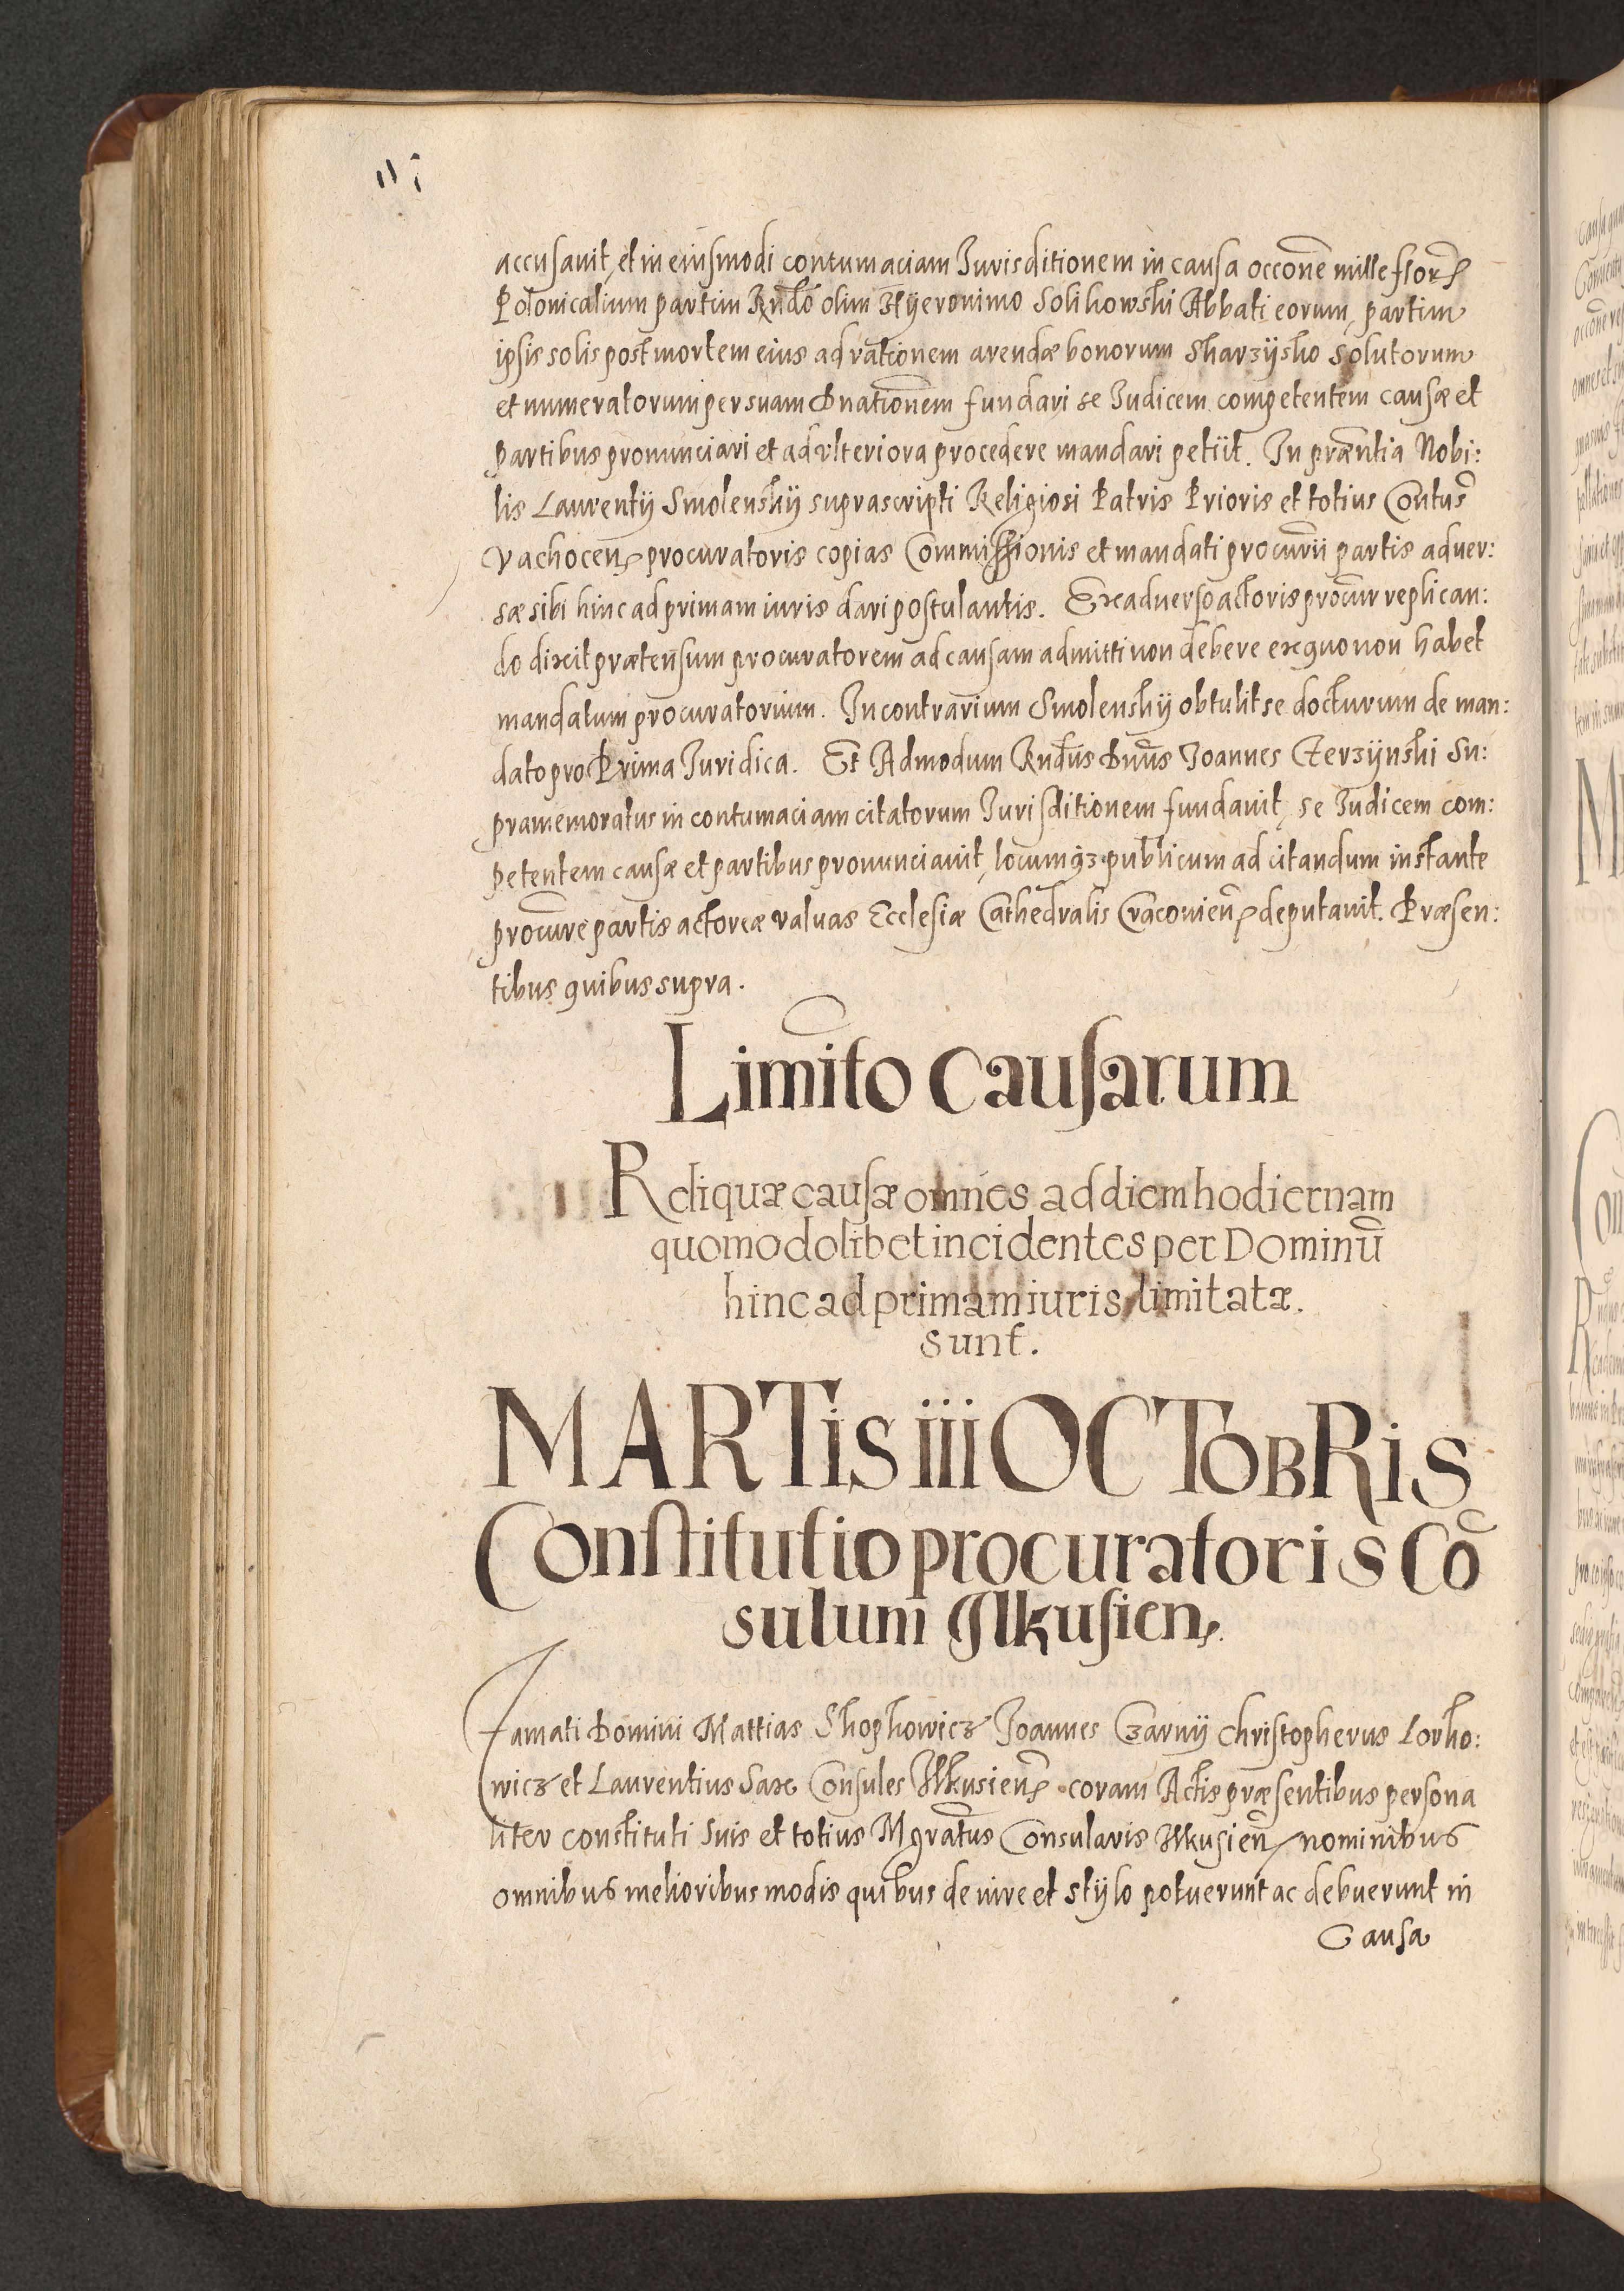 accusauit, et in eiusmodi contumaciam Jurisditionem in causa occone mille flor
Polonicalium partim Rndo olim Hyeronimo Solikowski Abbati eorum, partim
ipsis solis post mortem eius ad rationem arendæ bonorum Skarzysko solutorum
et numeratorum per suam Dnationem fundari se Judicem competentem causæ et
partibus pronunciari et ad vlteriora procedere mandari petiit. In præntia Nobi:
lis Laurentij Smolenskij suprascripti Religiosi Patris Prioris et totius Contus
Vachocen procuratoris copias Commissionis et mandati procurii partis aduer:
sæ sibi hinc ad primam iuris dari postulantis. Ex aduerso actoris procur replican:
do dixit prætensum procuratorem ad causam admitti non debere ex quo non habet
mandatum procuratorium. In contrarium Smolenskij obtulit se docturum de man:
dato pro Prima Juridica. Et Admodum Rndus Dnus Joannes Gerzynski Su:
pramemoratus in contumaciam citatorum Jurisditionem fundauit, se Judicem com:
petentem causæ et partibus pronunciauit, locumqz publicum ad citandum instante
procure partis actoreæ valuas Ecclesiæ Cathedralis Cracouien deputauit. Præsen:
tibus quibus supra.
Limito Causarum
Reliquæ causæ omnes ad diem hodiernam
quomodolibet incidentes per Dominū
hinc ad primam iuris limitatæ.
sunt.
MARTis iii OCTOBRis
Constitutio procuratoris Cō
sulum Ilkusien
Famati Domini Mattias Skopkowicz Joannes Czarny Christopherus Lorko:
wicz et Laurentius Sax Consules Ilkusien coram Actis præsentibus persona
liter constituti suis et totius Mgratus Consularis Ilkusien nominibus
omnibus melioribus modis quibus de iure et stylo potuerunt ac debuerunt in
Causa